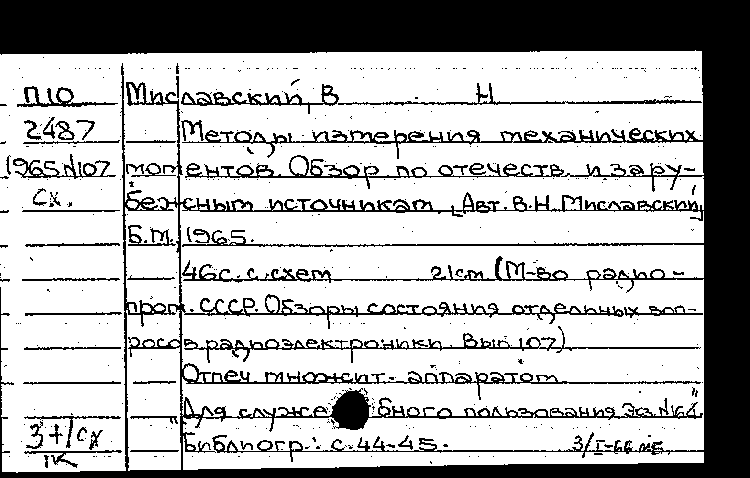 П10 Миславский, В Н
2487 Методы измерения механических
1965 N107 моментов. Обзор по отечеств. и зару-
сх. бежным источникам. [Авт. В.Н. Миславский]
Б.М., 1965.
46 с. с схем 21 см (М-во радио-
пром. СССР. Обзоры состояния отдельных воп-
росов радиоэлектроники. Вып. 107).
Отпеч. множит. аппаратом
"Для служебного пользования Экз. N164"
3+1сх Библиогр.: с. 44-45. 3/I-66